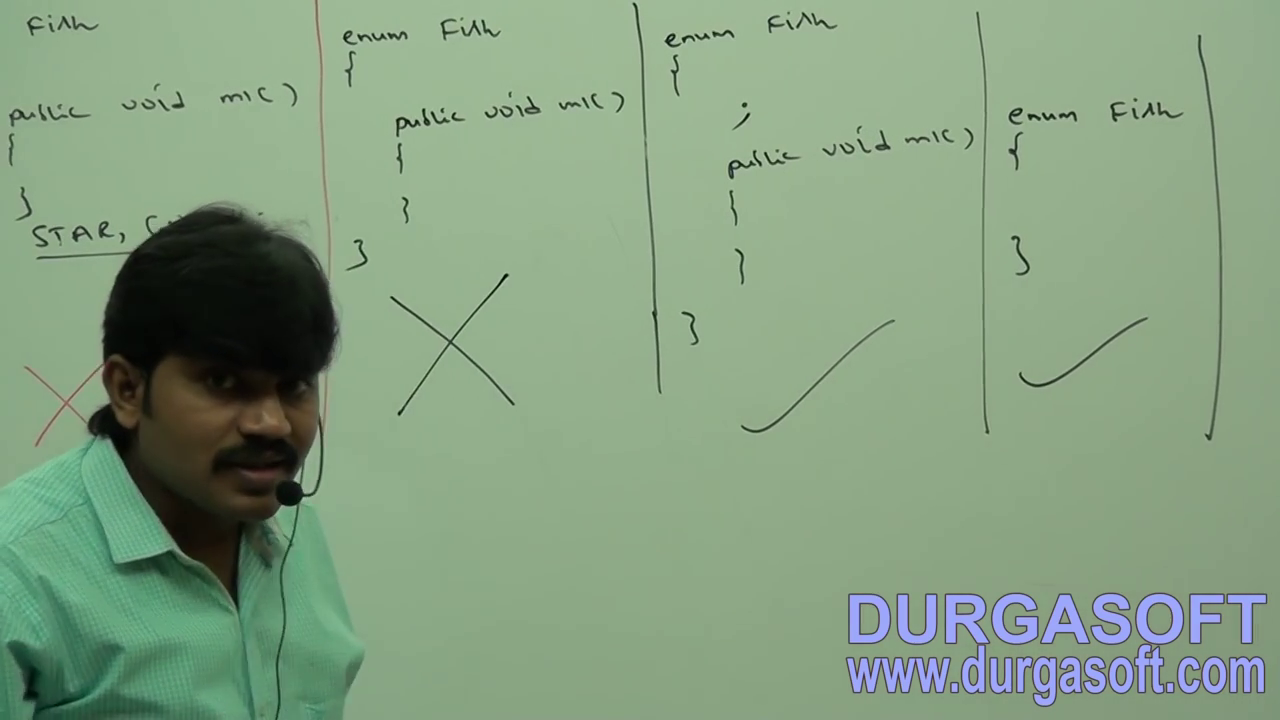 Fish
public void m1()
{
}
STAR,
enum Fish
{
public void m1()
{
}
}
enum Fish
{
;
public void m1()
{
}
}
enum Fish
{
}
DURGASOFT
www.durgasoft.com